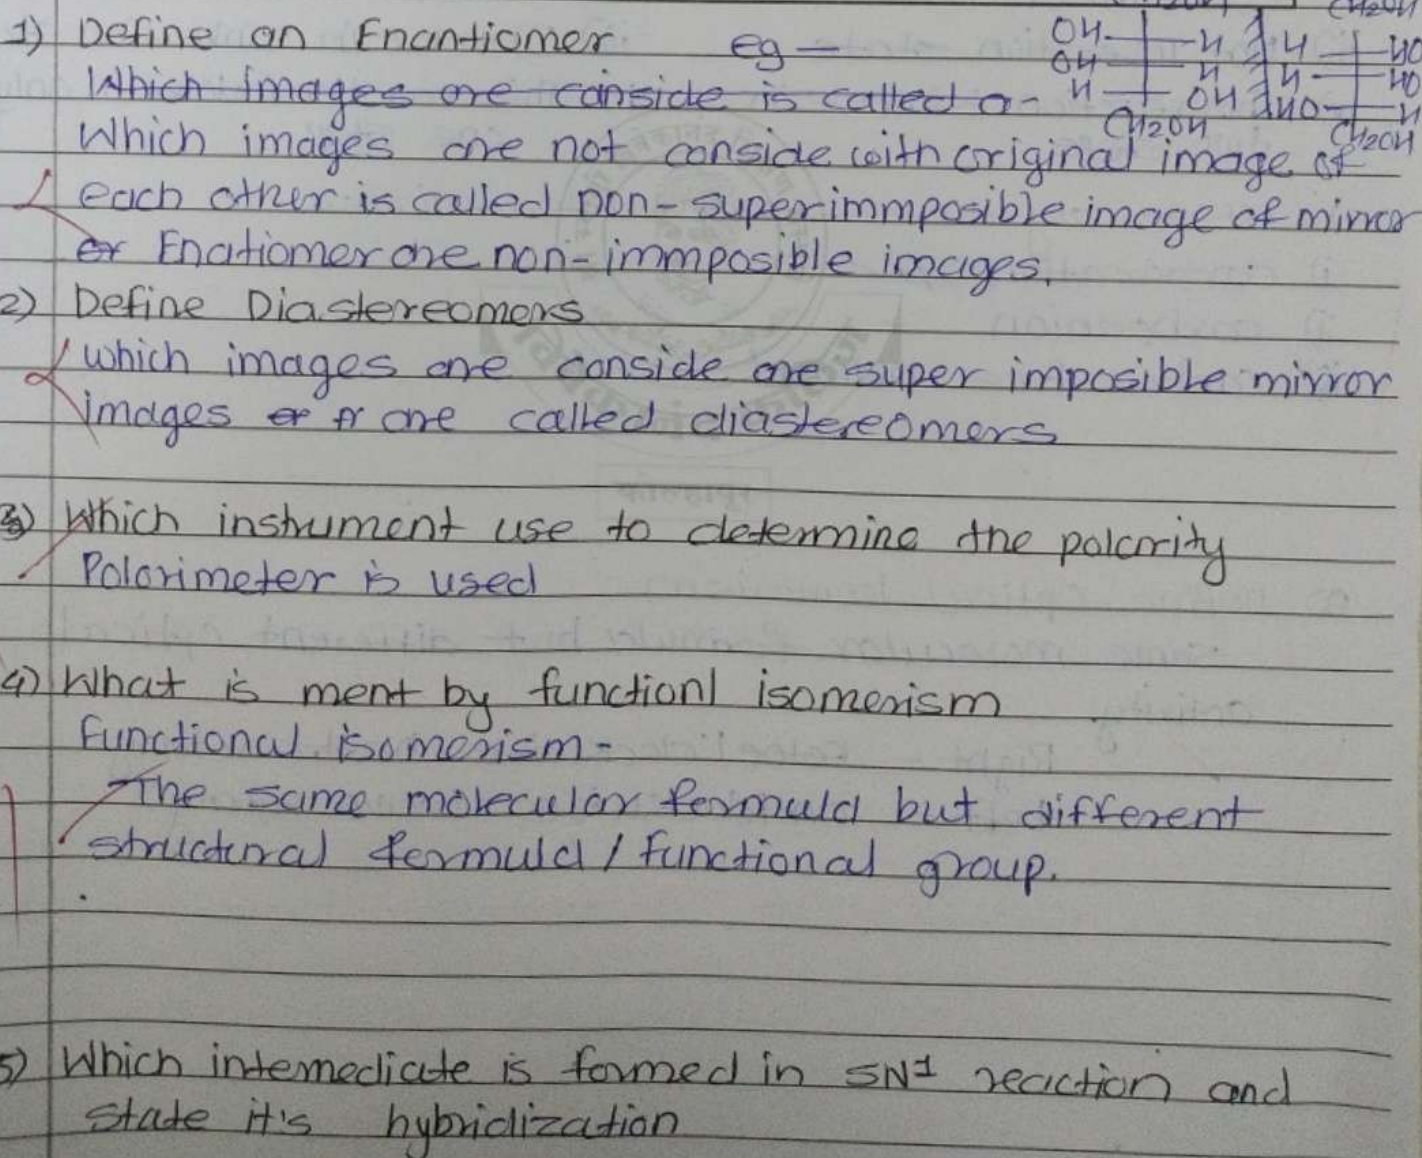 1) Define an Enantiomer eg — OH H H HO
OH H H HO
H OH HO H
CH2OH CH2OH
Which images are conside is called a-
Which images are not conside with original image of
each other is called non-superimmposible image of mirror
or Enatiomer are non-immposible images.
2) Define Diastereomers
which images are conside are super imposible mirror
images or are called diastereomers
3) Which instrument use to determine the polarity
Polarimeter is used
4) What is ment by functionl isomerism
Functional isomerism-
The same molecular formula but different
structural formula / functional group.
5) Which intemediate is formed in SN1 reaction and
state it's hybridization